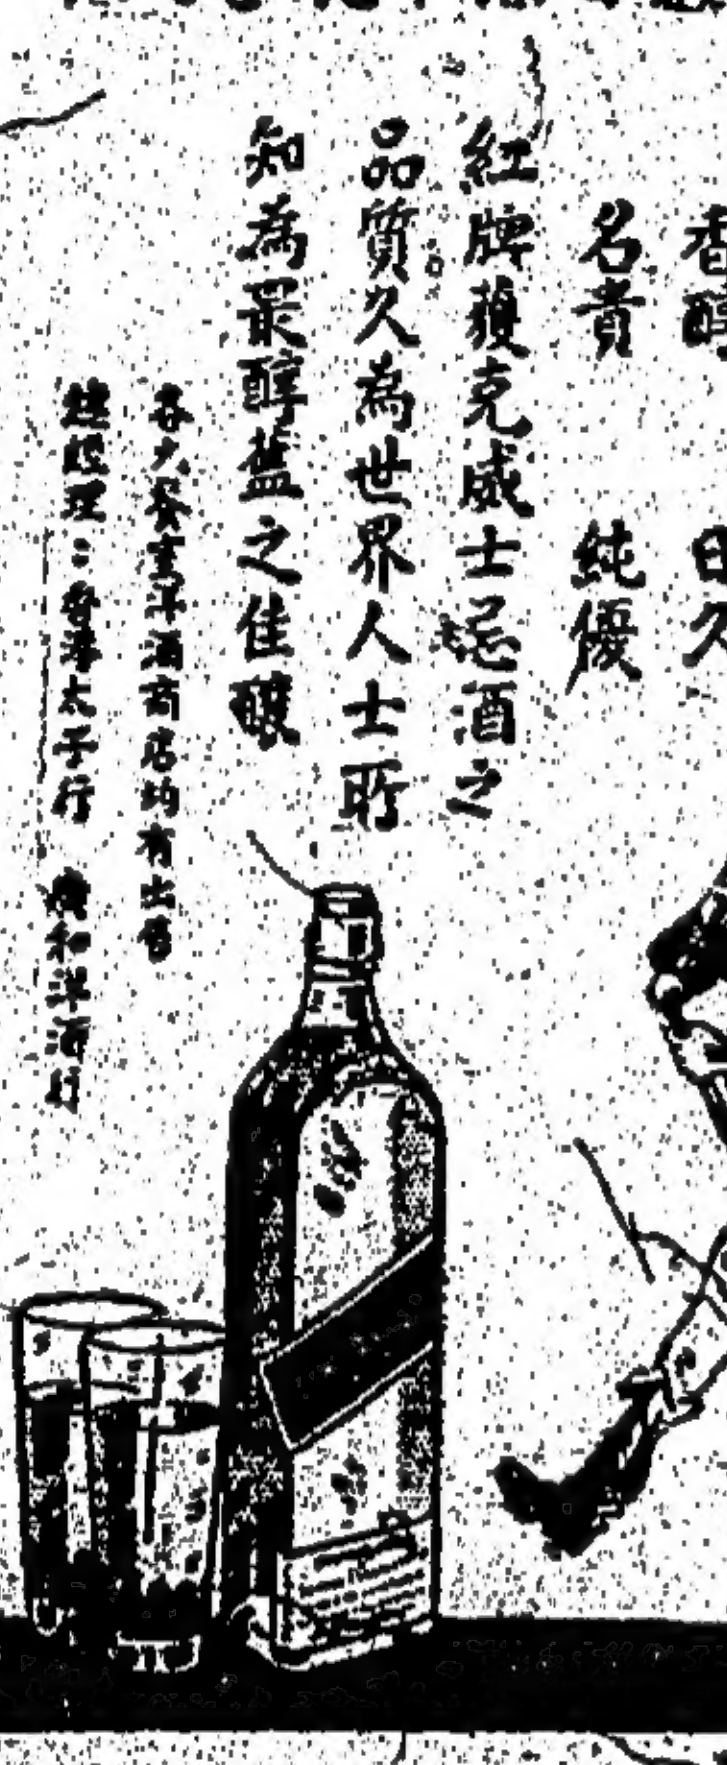 香醇 日久
名貴 純優
紅牌獲克威士忌酒之
品質久為世界人士所
知為最醇舊之佳釀
各大餐室洋酒商店均有出售
總經理：香港太子行 廣和洋酒行